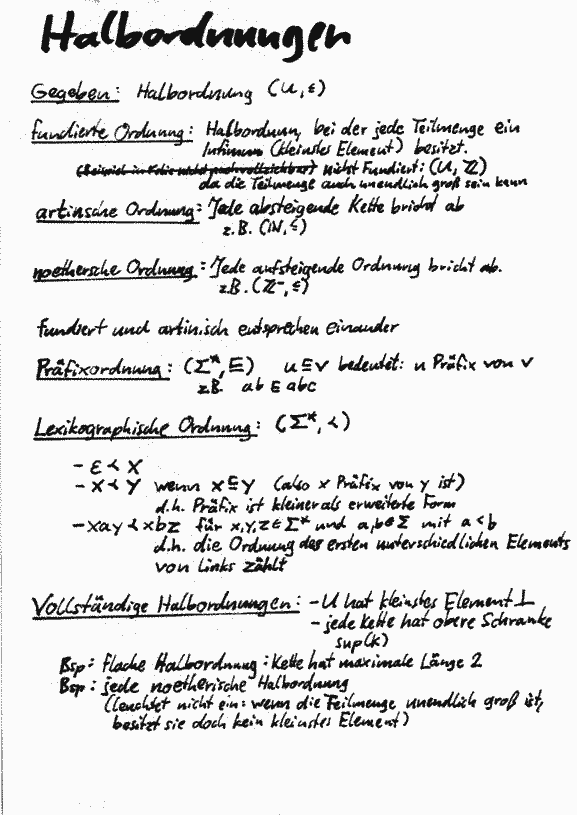 Halbordnungen
Gegeben: Halbordnung (U, ≤)
fundierte Ordnung: Halbordnun, bei der jede Teilmenge ein
Infimum (kleinstes Element) besitzt.
nicht Fundiert: (U, ℤ)
da die Teilmenge auch unendlich groß sein kann
artinsche Ordnung: Jede absteigende Kette bricht ab
z.B. (ℕ, ≤)
noethersche Ordnung: Jede aufsteigende Ordnung bricht ab.
z.B. (ℤ⁻, ≤)
fundiert und artinisch entsprechen einander
Präfixordnung: (Σ*, ⊑) u ⊑ v bedeutet: u Präfix von v
z.B. ab ⊑ abc
Lexikographische Ordnung: (Σ*, ≺)
- ε ≺ X
- X ≺ Y wenn x ⊑ y (also x Präfix von y ist)
d.h. Präfix ist kleiner als erweiterte Form
- xay ≺ xbz für x,y,z ∈ Σ* und a,b ∈ Σ mit a < b
d.h. die Ordnung des ersten unterschiedlichen Elements
von links zählt
Vollständige Halbordnungen: - U hat kleinstes Element ⊥
- jede Kette hat obere Schranke
sup(K)
Bsp: flache Halbordnung: Kette hat maximale Länge 2
Bsp: jede noetherische Halbordnung
(leuchtet nicht ein: wenn die Teilmenge unendlich groß ist,
besitzt sie doch kein kleinstes Element)